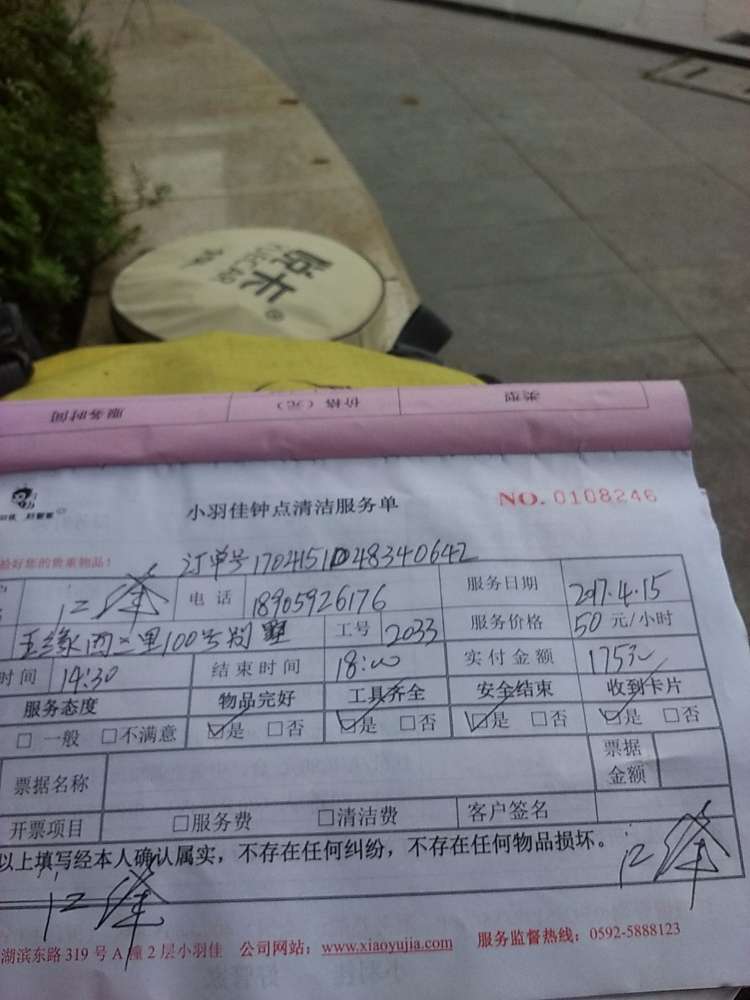 卡
类型 价格（元） 服务时间
小羽佳钟点清洁服务单 NO. 0108246
订单号1704151048340642
电话 18905926176 服务日期 2017.4.15
工号 2033 服务价格 50元/小时
时间 14:30 结束时间 18:00 实付金额 175元
服务态度 物品完好 工具齐全 安全结束 收到卡片
□ 一般 □不满意 ☑是 □否 ☑是 □否 ☑是 □否 ☑是 □否
票据名称 票据金额
开票项目 □服务费 □清洁费 客户签名
以上填写经本人确认属实，不存在任何纠纷，不存在任何物品损坏。
湖滨东路 319 号 A 幢 2 层小羽佳 公司网站：www.xiaoyujia.com 服务监督热线：0592-5888123